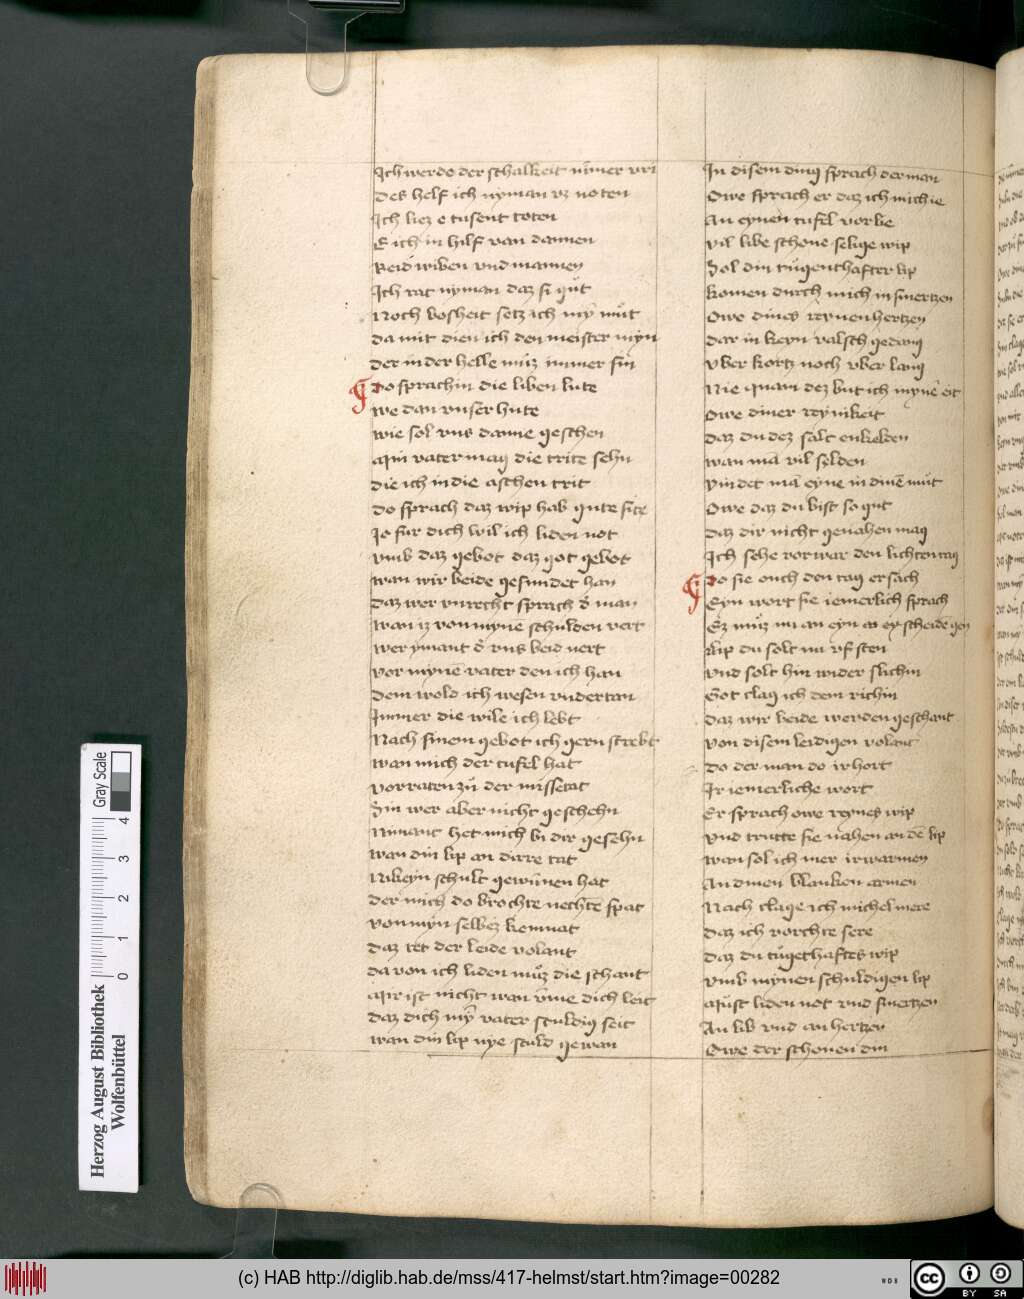 Ich werde der schalkeit nimer vri
Des helf ich nyman vz noten
Ich liez e tusent toten
E ich in hilf van dannen
Beid wiben vnd mannen
Ich rat nyman daz si gůt
Noch bosheit setz ich mȳ můt
da mit dien ich den meister myn
der in der helle můz immer sin
Do sprachin die liben lute
we dan vnser hute
wie sol vns danne geschen
Min vater mag die trite sehn
die ich in die aschen trit
Do sprach daz wip hab gute site
Jo fur dich wil ich liden not
vmb daz gebot daz got gebot
wan wir beide gesundet han
Daz wer vnrecht sprach d' man
wan iz von myne schulden vert
wer ymant d' vns beid nert
vor myne vater den ich han
Dem wold ich wesen vndertan
Immer die wile ich lebt
Nach sinem gebot ich gern strebt
wan mich der tufel hat
vorraten zů der missetat
Sin wer aber nicht geschehn
Nimant het mich bi dir gesehn
wan din lip an dirre tat
Nikeyn schult gewūnen hat
der mich do brochte nechte spat
von myn selbez kemnat
daz tet der leide volant
da von ich liden můz die schant
Mir ist nicht wan vme dich leit
daz dich mȳ vater sculdig seit
wan din lip nye sculd gewan
In disem ding sprach der man
Owe sprach er daz ich mich ie
An eynen tufel vorlie
vil libe schone selige wip
Sol din tůgenthafter lip
komen durch mich in smertzen
Owe dines reynen hertzen
dar in keyn valsch gedang
vber kortz noch vber lang
Nie quam dez but ich mynē eit
Owe diner reynikeit
daz du dez salt enkelden
wan mā vil selden
vindet mā eyne in dinē můt
Owe daz du bist so gut
daz dir nicht genahen mag
Ich sehe vorwar den lichten tag
Do sie ouch den tag ersach
Eyn wort sie iemerlich sprach
Ez můz nu an eyn scheide gen
Lip du solt nu vf sten
vnd solt hin wider slichin
Got clag ich dem richin
daz wir beide werden geschant
von disem leidigen volant
Do der man do irhort
Ir iemerliche wort
Er sprach owe reynes wip
vnd trutte sie nahen an dē lip
wan sol ich mer irwarmen
An dinen blanken armen
Nach clage ich michel mere
daz ich vorchte sere
daz du tůgethaftes wip
vmb mynen schuldigen lip
Můst liden not vnd smertzen
An lib vnd an hertzen
Owe der schonen din
Gray Scale
4
3
2
1
0
Herzog August Bibliothek
Wolfenbüttel
(c) HAB http://diglib.hab.de/mss/417-helmst/start.htm?image=00282
WDB
cc
BY
SA